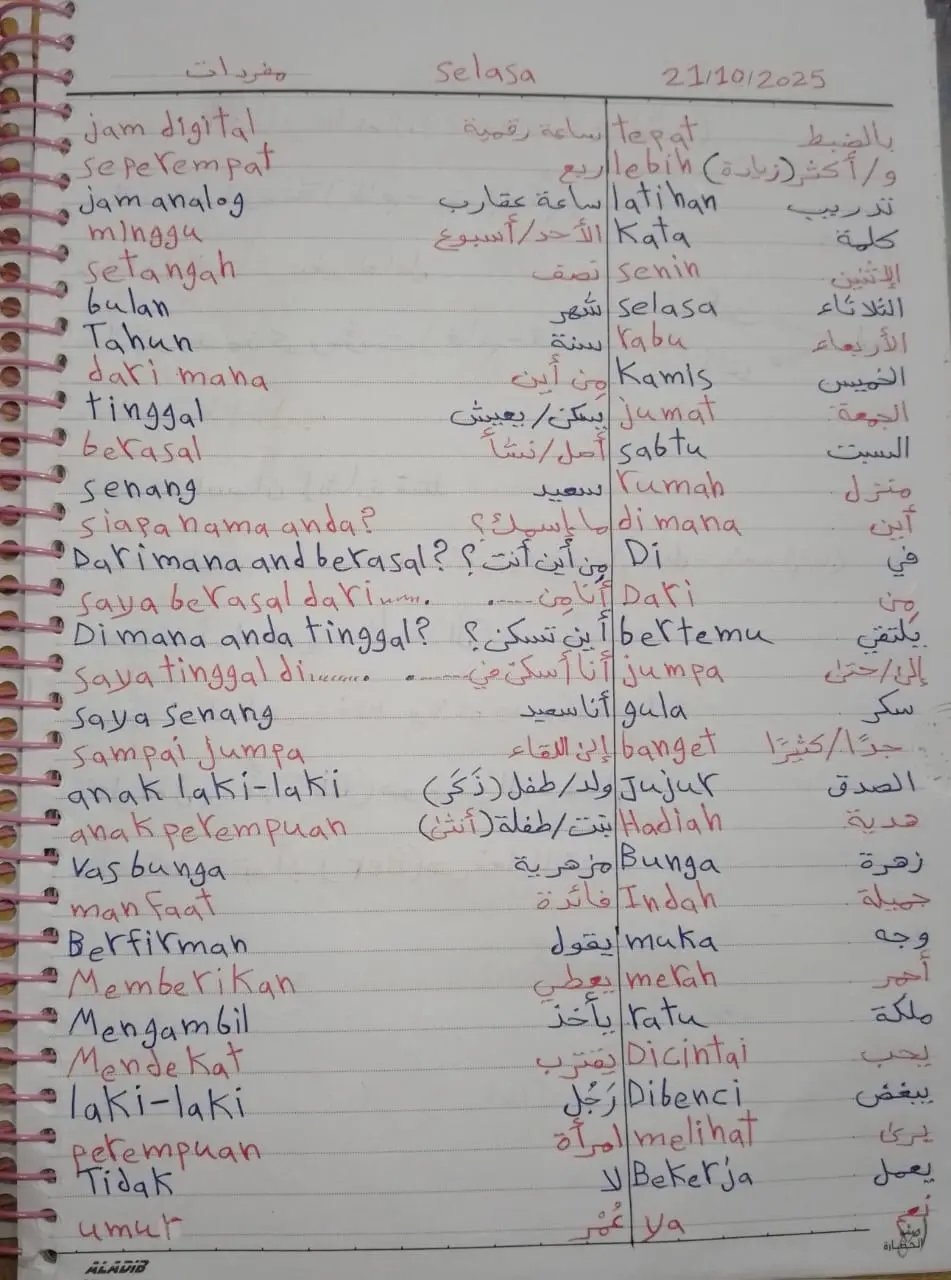 مفردات selasa 21/10/2025
jam digital ساعة رقمية tepat بالضبط
seperempat ربع lebih و/أكثر (زيادة)
jam analog ساعة عقارب latihan تدريب
minggu الأحد/أسبوع Kata كلمة
setangah نصف senin الإثنين
bulan شهر selasa الثلاثاء
Tahun سنة rabu الأربعاء
dari mana مِن أين Kamis الخميس
tinggal يسكن/يعيش jumat الجمعة
berasal أصل/نشأ sabtu السبت
senang سعيد rumah منزل
siapa nama anda? ما إسمك؟ di mana أين
Dari mana and berasal? مِن أين أنت؟ Di في
saya berasal dari...... أنا مِن ...... Dari مِن
Di mana anda tinggal? أين تسكن؟ bertemu يلتقي
saya tinggal di......... أنا أسكن في ......... jumpa إلى/حتى
saya senang أنا سعيد gula سكر
sampai jumpa إلى اللقاء banget جدًا/كثيرًا
anak laki-laki ولد/طفل (ذَكَر) Jujur الصدق
anak perempuan بنت/طفلة (أنثى) Hadiah هدية
Vas bunga مزهرية Bunga زهرة
manfaat فائدة Indah جميلة
Berfirman يقول muka وجه
Memberikan يعطي merah أحمر
Mengambil يأخذ ratu ملكة
Mendekat يقترب Dicintai يحب
laki-laki رَجُل Dibenci يبغض
perempuan امرأة melihat يرى
Tidak لا Bekerja يعمل
umur عُمْر ya نعم
ALADIB